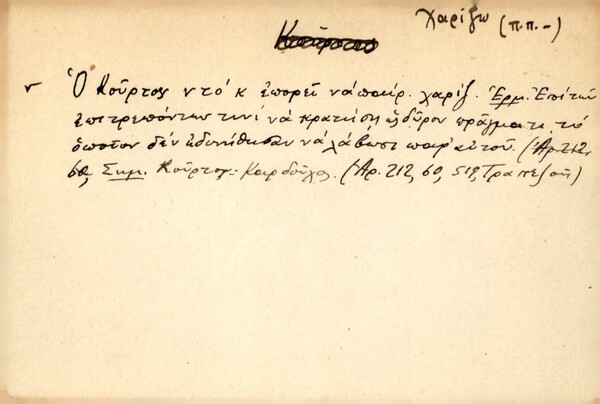 Χαρίζω (π.π.-)
Κούρτος
Ὁ Κοῦρτον ντό κ̓ ἐπορεῖ νά παίρ. χαρίζ. Ἑρμ. Ἐπί τῶν
ἐπιτρεπόντων τινί νά κρατήσῃ ὡς δῶρον πρᾶγμα τι τό
ὁποῖον δέν ἠδυνήθησαν νά λάβωσι παρ' αὐτοῦ. (Ἀρ. 212,
60, Σημ. Κοῦρτον - Καρδοῦχος. (Ἀρ. 212, 60, 519, Τραπεζοῦς)